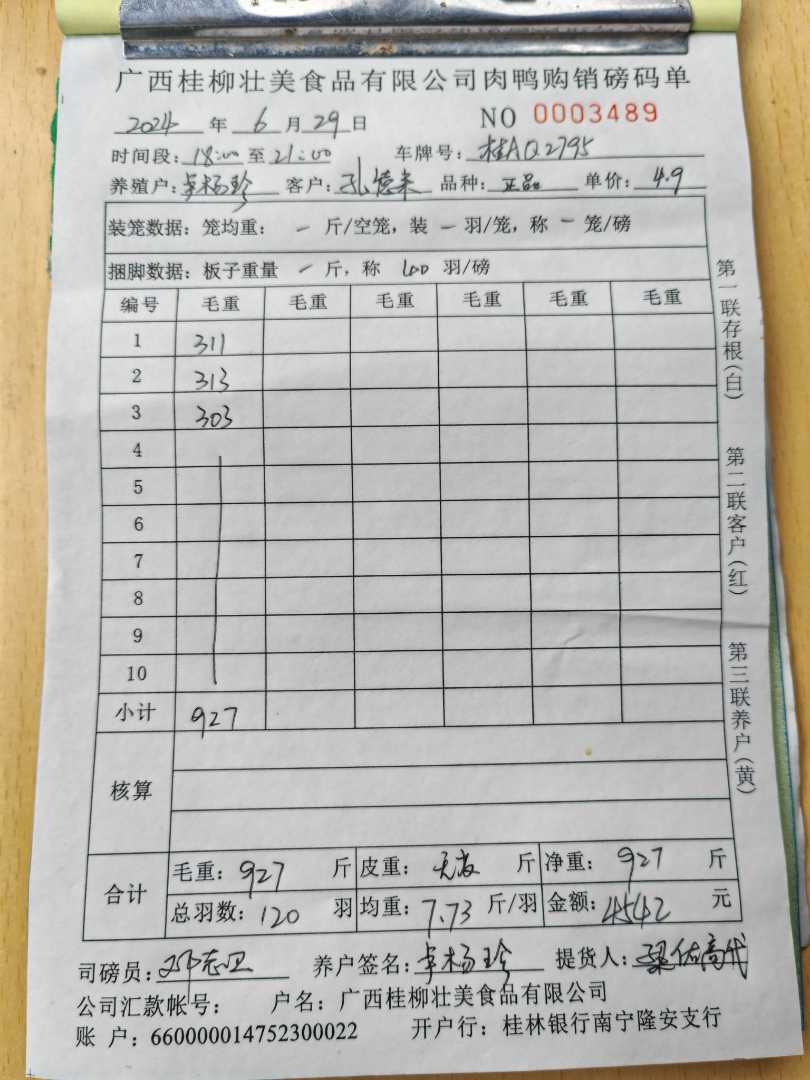 广西桂柳壮美食品有限公司肉鸭购销磅码单
2024 年 6 月 29 日 NO 0003489
时间段: 18:00 至 21:00 车牌号: 桂AQ2795
养殖户: 卓杨珍 客户: 孔德来 品种: 正品 单价: 4.9
装笼数据: 笼均重: - 斤/空笼, 装 - 羽/笼, 称 - 笼/磅
捆脚数据: 板子重量 - 斤, 称 羽/磅
编号 毛重 毛重 毛重 毛重 毛重 毛重
1 311
2 313
3 303
4
5
6
7
8
9
10
小计 927
核算
合计
毛重: 927 斤 皮重: 斤 净重: 927 斤
总羽数: 120 羽 均重: 7.73 斤/羽 金额: 4542 元
司磅员: 邓志卫 养户签名: 卓杨珍 提货人:
公司汇款帐号: 户名: 广西桂柳壮美食品有限公司
账 户: 660000014752300022 开户行: 桂林银行南宁隆安支行
第一联存根(白)
第二联客户(红)
第三联养户(黄)